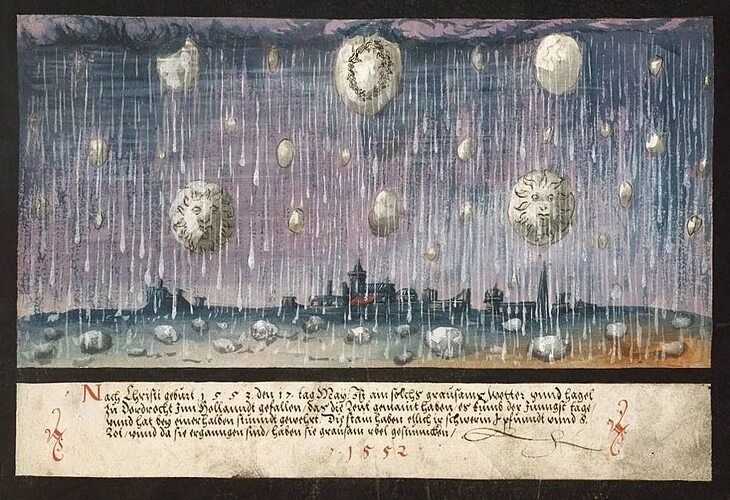 Nach Christi geburt 1 5 5 2 den 17 tag May Ist ain solchs grausams wetter vnnd hagel
zu Dordrecht Inn Hollanndt gefallen das die leut gemaint haben es kumb der Jüngst tage
vnnd hat bey einer halben stunndt gewehrt Die stain haben ettlich jr schwerin pfunndt vnnd 8.
Lot / vnnd da sie erganngen sind / haben sie grausam vbel gestunncken /
1552